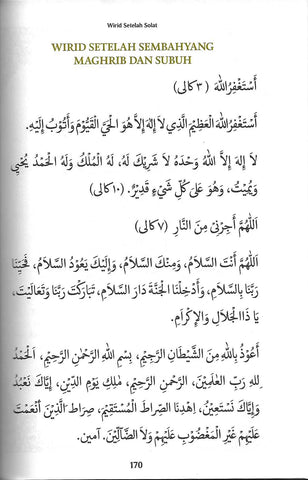 Wirid Setelah Solat
WIRID SETELAH SEMBAHYANG
MAGHRIB DAN SUBUH
أَسْتَغْفِرُ اللهَ (٣ كالى)
أَسْتَغْفِرُ اللهَ الْعَظِيْمَ الَّذِي لاَ إِلَهَ إِلاَّ هُوَ الْحَيَّ الْقَيُّوْمَ وَأَتُوْبُ إِلَيْهِ.
لاَ إِلهَ إِلاَّ اللهُ وَحْدَهُ لاَ شَرِيْكَ لَهُ، لَهُ الْمُلْكُ وَلَهُ الْحَمْدُ يُحْيِي
وَيُمِيْتُ، وَهُوَ عَلَى كُلِّ شَيْءٍ قَدِيْرٌ. (١٠ كالى)
اَللَّهُمَّ أَجِرْنِي مِنَ النَّارِ (٧ كالى)
اَللَّهُمَّ أَنْتَ السَّلاَمُ، وَمِنْكَ السَّلاَمُ، وَإِلَيْكَ يَعُوْدُ السَّلاَمُ، فَحَيِّنَا
رَبَّنَا بِالسَّلاَمِ، وَأَدْخِلْنَا الْجَنَّةَ دَارَ السَّلاَمِ، تَبَارَكْتَ رَبَّنَا وَتَعَالَيْتَ،
يَا ذَا الْجَلاَلِ وَالْإِكْرَامِ.
أَعُوْذُ بِاللهِ مِنَ الشَّيْطَانِ الرَّجِيْمِ، بِسْمِ اللهِ الرَّحْمٰنِ الرَّحِيْمِ، اَلْحَمْدُ
لِلهِ رَبِّ الْعٰلَمِيْنَ، الرَّحْمٰنِ الرَّحِيْمِ، مٰلِكِ يَوْمِ الدِّيْنِ، إِيَّاكَ نَعْبُدُ
وَإِيَّاكَ نَسْتَعِيْنُ، اِهْدِنَا الصِّرَاطَ الْمُسْتَقِيْمَ، صِرَاطَ الَّذِيْنَ أَنْعَمْتَ
عَلَيْهِمْ غَيْرِ الْمَغْضُوْبِ عَلَيْهِمْ وَلاَ الضَّآلِّيْنَ. آمين.
170